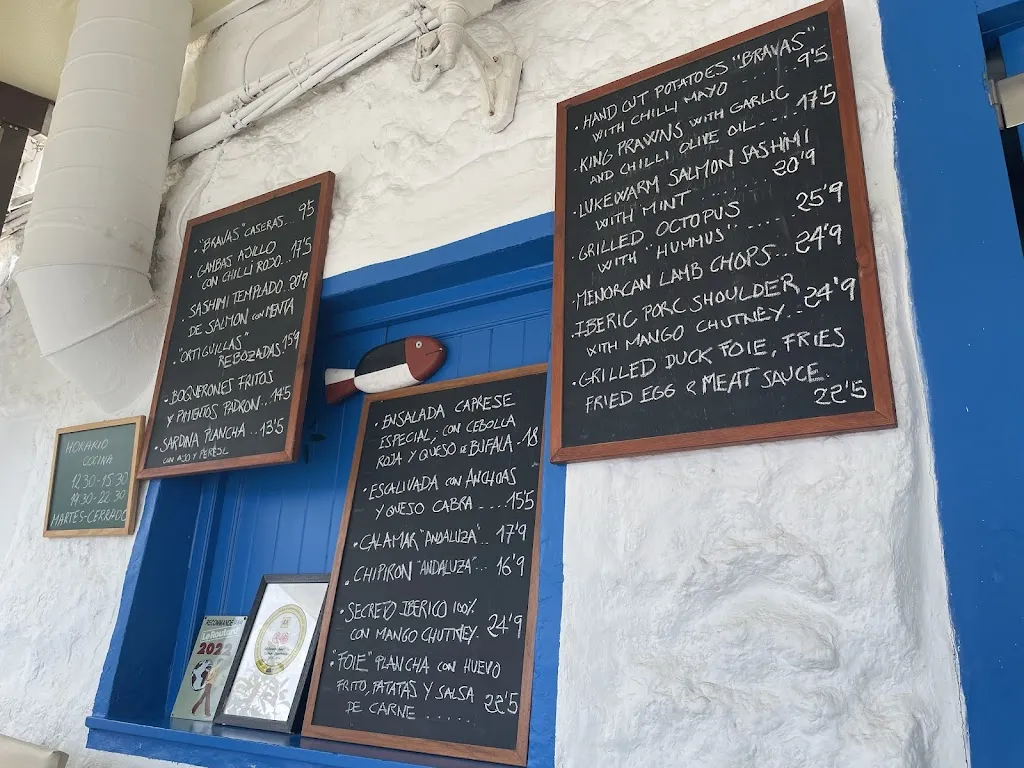 HORARIO
COCINA
12.30-15.30
19.30-22.30
MARTES-CERRADO
"BRAVAS" CASERAS... 9'5
· GAMBAS AJILLO
CON CHILLI ROJO... 17'5
· SASHIMI TEMPLADO. 20'9
DE SALMON CON MENTA
"ORTIGUILLAS"
REBOZADAS. 15'9
· BOQUERONES FRITOS
Y PIMIENTOS PADRON.. 14'5
· SARDINA PLANCHA... 13'5
CON AJO Y PEREJIL
· ENSALADA CAPRESE
ESPECIAL; CON CEBOLLA
ROJA Y QUESO DE BUFALA. 18
· ESCALIVADA CON ANCHOAS
Y QUESO CABRA .... 15'5
· CALAMAR "ANDALUZA".. 17'9
· CHIPIRON "ANDALUZA"... 16'9
· SECRETO IBERICO 100%
CON MANGO CHUTNEY. 24'9
· "FOIE" PLANCHA CON HUEVO
FRITO, PATATAS Y SALSA
DE CARNE ...... 22'5
· HAND CUT POTATOES "BRAVAS"
WITH CHILLI MAYO 9'5
· KING PRAWNS WITH GARLIC
AND CHILLI OLIVE OIL..... 17'5
· LUKEWARM SALMON SASHIMI
WITH MINT ........ 20'9
· GRILLED OCTOPUS
WITH "HUMMUS" ..... 25'9
· MENORCAN LAMB CHOPS.. 24'9
IBERIC PORC SHOULDER
WITH MANGO CHUTNEY... 24'9
· GRILLED DUCK FOIE, FRIES
FRIED EGG & MEAT SAUCE.
22'5
RECOMMANDÉ
Le Routard
2022